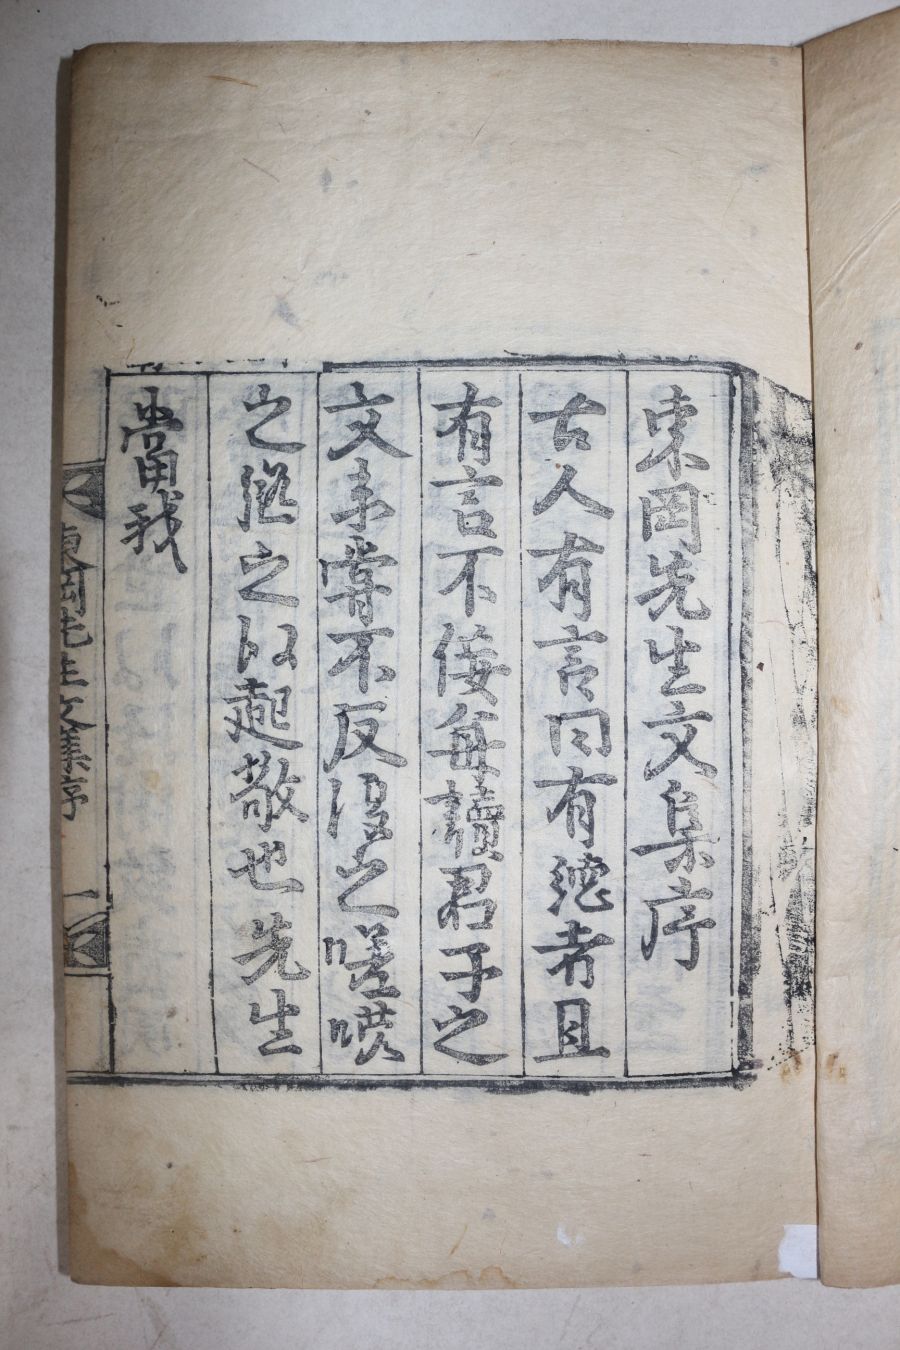 東岡先生文集序
古人有言曰有德者且
有言不佞每讀君子之
文未嘗不反復之嗟嘆
之繼之以起敬也先生
當我
東岡先生文集序 一